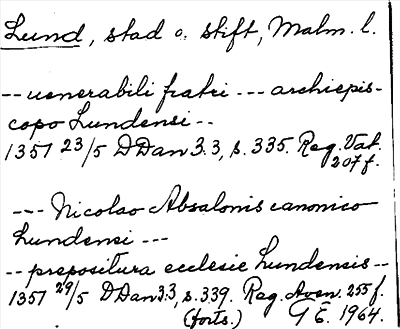 Lund, stad o. stift, Malm. l.
-- venerabili fratri --- archiepis-
copo Lundensi --
1357 23/5 DDan 3.3, s. 335. Reg. Vat.
207 f.
--- Nicolao Absalonis canonico
Lundensi ---
-- prepositura ecclesie Lundensis --
1357 29/5 DDan 3.3, s. 339. Reg. Aven. 255 f.
(forts.) G E. 1964.